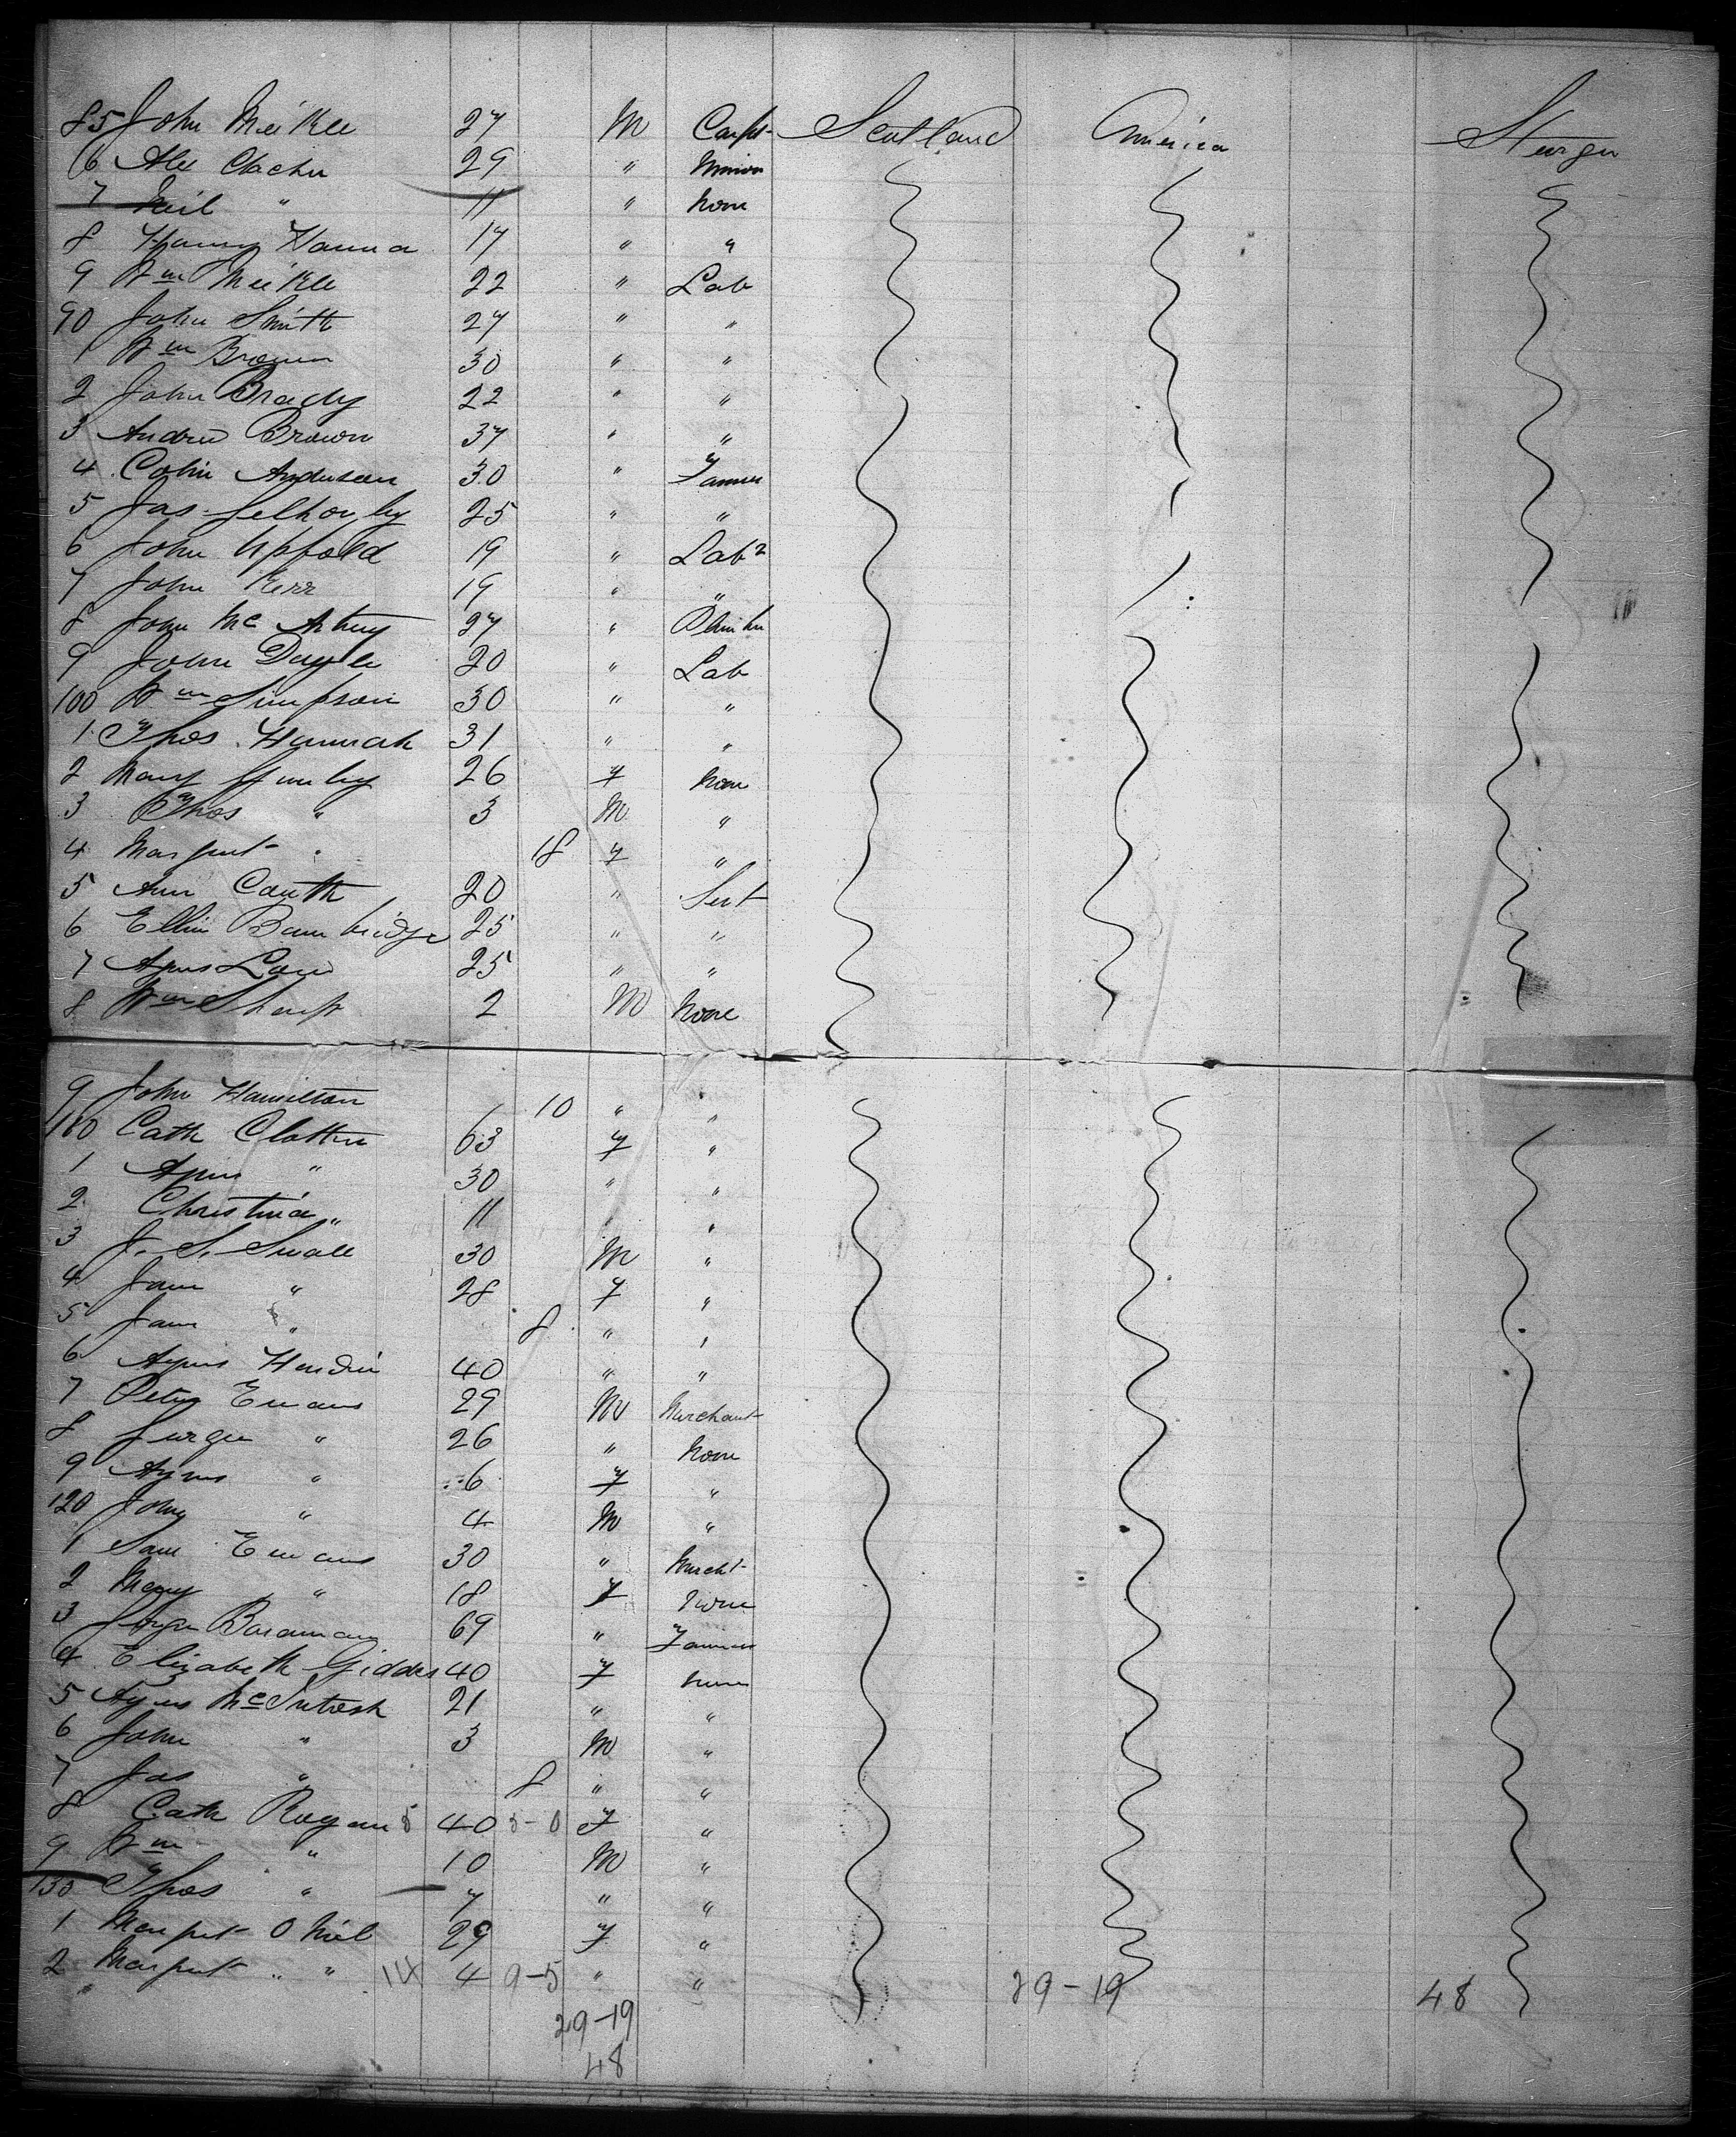 85 John Meikle 27 M Carpt Scotland America Steerge
6 Alex Clacher 29 " Minior
7 Neil " 11 " None
8 Henry Hanna 17 " "
9 Wm Meikle 22 " Lab
90 John Smith 27 " "
1 Wm Brown 30 " "
2 John Brady 22 " "
3 Andrew Brown 37 " "
4 Colin Anderson 30 " Farmer
5 Jas 25 " "
6 John Upfold 19 " Labr
7 John Kerr 19 " "
8 John Mc Arthur 27 " Plumber
9 John Doyle 20 " Lab
100 Wm Simpson 30 " "
1 Thos Hannah 31 " "
2 Mary 26 F None
3 Thos " 3 M "
4 Margret " 18 F "
5 Ann 20 " Sert
6 Ellin Bambridge 25 " "
7 Agnes Low 25 " "
8 Wm Sharp 2 M None
9 John Hamilton 10 " "
110 Cath 63 F "
1 Agnes " 30 " "
2 Christina " 11 " "
3 J. S. Small 30 M "
4 Jane " 28 F "
5 Jane " 8 " "
6 Agnes Hendrie 40 " "
7 Peter Emans 29 M Merchant
8 " 26 " None
9 Agnes " 6 F "
120 John " 4 M "
1 Sam Emans 30 " Mercht
2 Mary " 18 F None
3 69 " Farmer
4 Elizabeth Giddes 40 F None
5 Agnes McIntosh 21 " "
6 John " 3 M "
7 Jas " 8 " "
8 Cath Rogan 5 40 5-0 F "
9 Wm " 10 M "
130 Thos " 7 " "
1 Margret O Neil 29 F "
2 Margret " " 14 4 9-5 " " 29-19 48
29-19
48